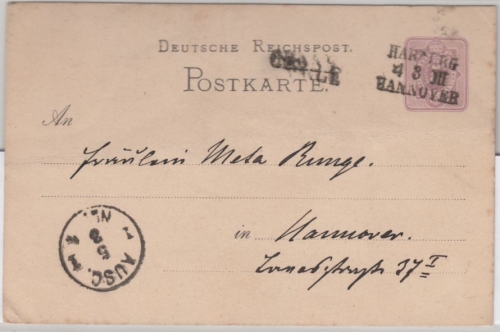 DEUTSCHE REICHSPOST.
POSTKARTE.
HARBURG
4 3 III
HANNOVER
CELLE
An
Fräulein Meta Runge.
in Hannover.
37 I
AUSG.
5
3